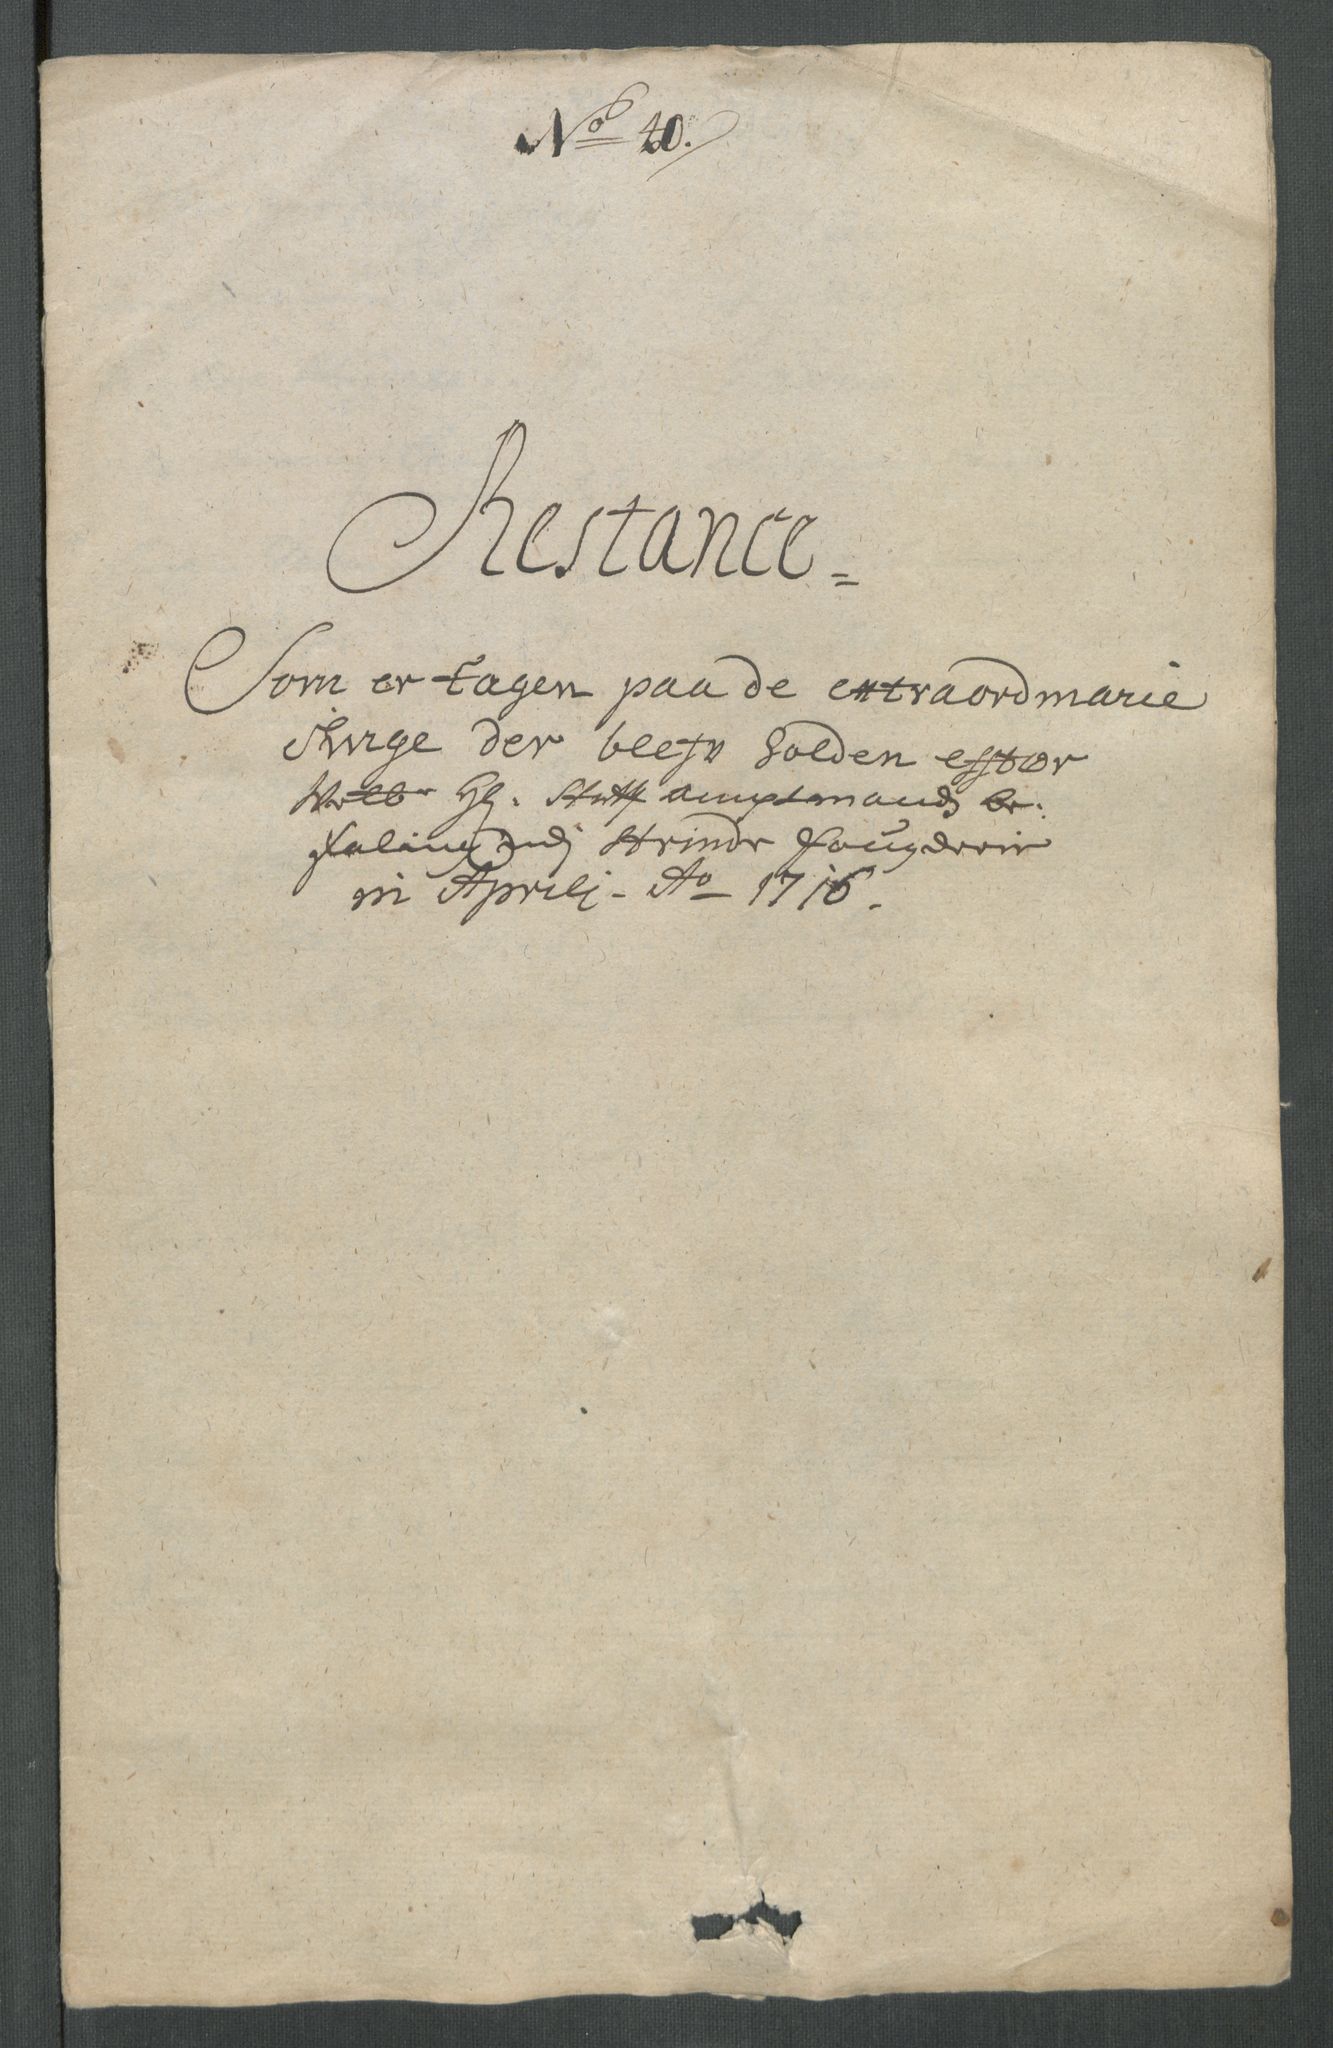 No 40.
Restance =
Som er tagen paa de extraordinarie
tinge der blefv holden effter
Welbr Hr. Stifft amptmands be:
faling udj Strinde fougderie
in Aprili - Ao 1716.